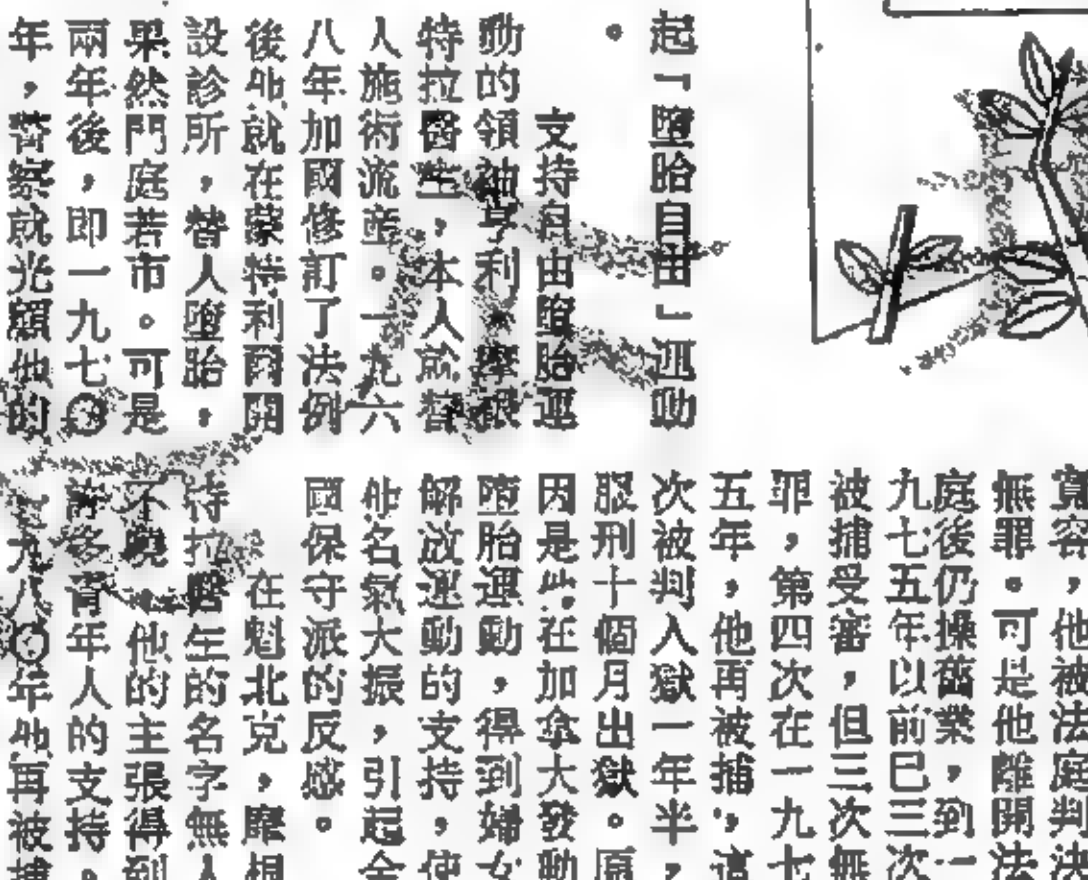 起「墮胎自由」運動
。
支持自由墮胎運
動的領袖亨利
特拉醫生,本人就替
人施術流產。一九六
八年加國修訂了法例
後他就在蒙特利爾開
設診所,替人墮胎,
果然門庭若市。可是
兩年後,即一九七〇
年,警察就光顧他的
寬容,他被法庭判決
無罪。可是他離開法
庭後仍操舊業,到一
九七五年以前已三次
被捕受審,但三次無
罪,第四次在一九七
五年,他再被捕,這
次被判入獄一年半,
服刑十個月出獄。原
因是他在加拿大發動
墮胎運動,得到婦女
解放運動的支持,使
他名氣大振,引起全
國保守派的反感。
在魁北克,摩根
特拉醫生的名字無人
不曉,他的主張得到
青年人的支持。
年他再被捕